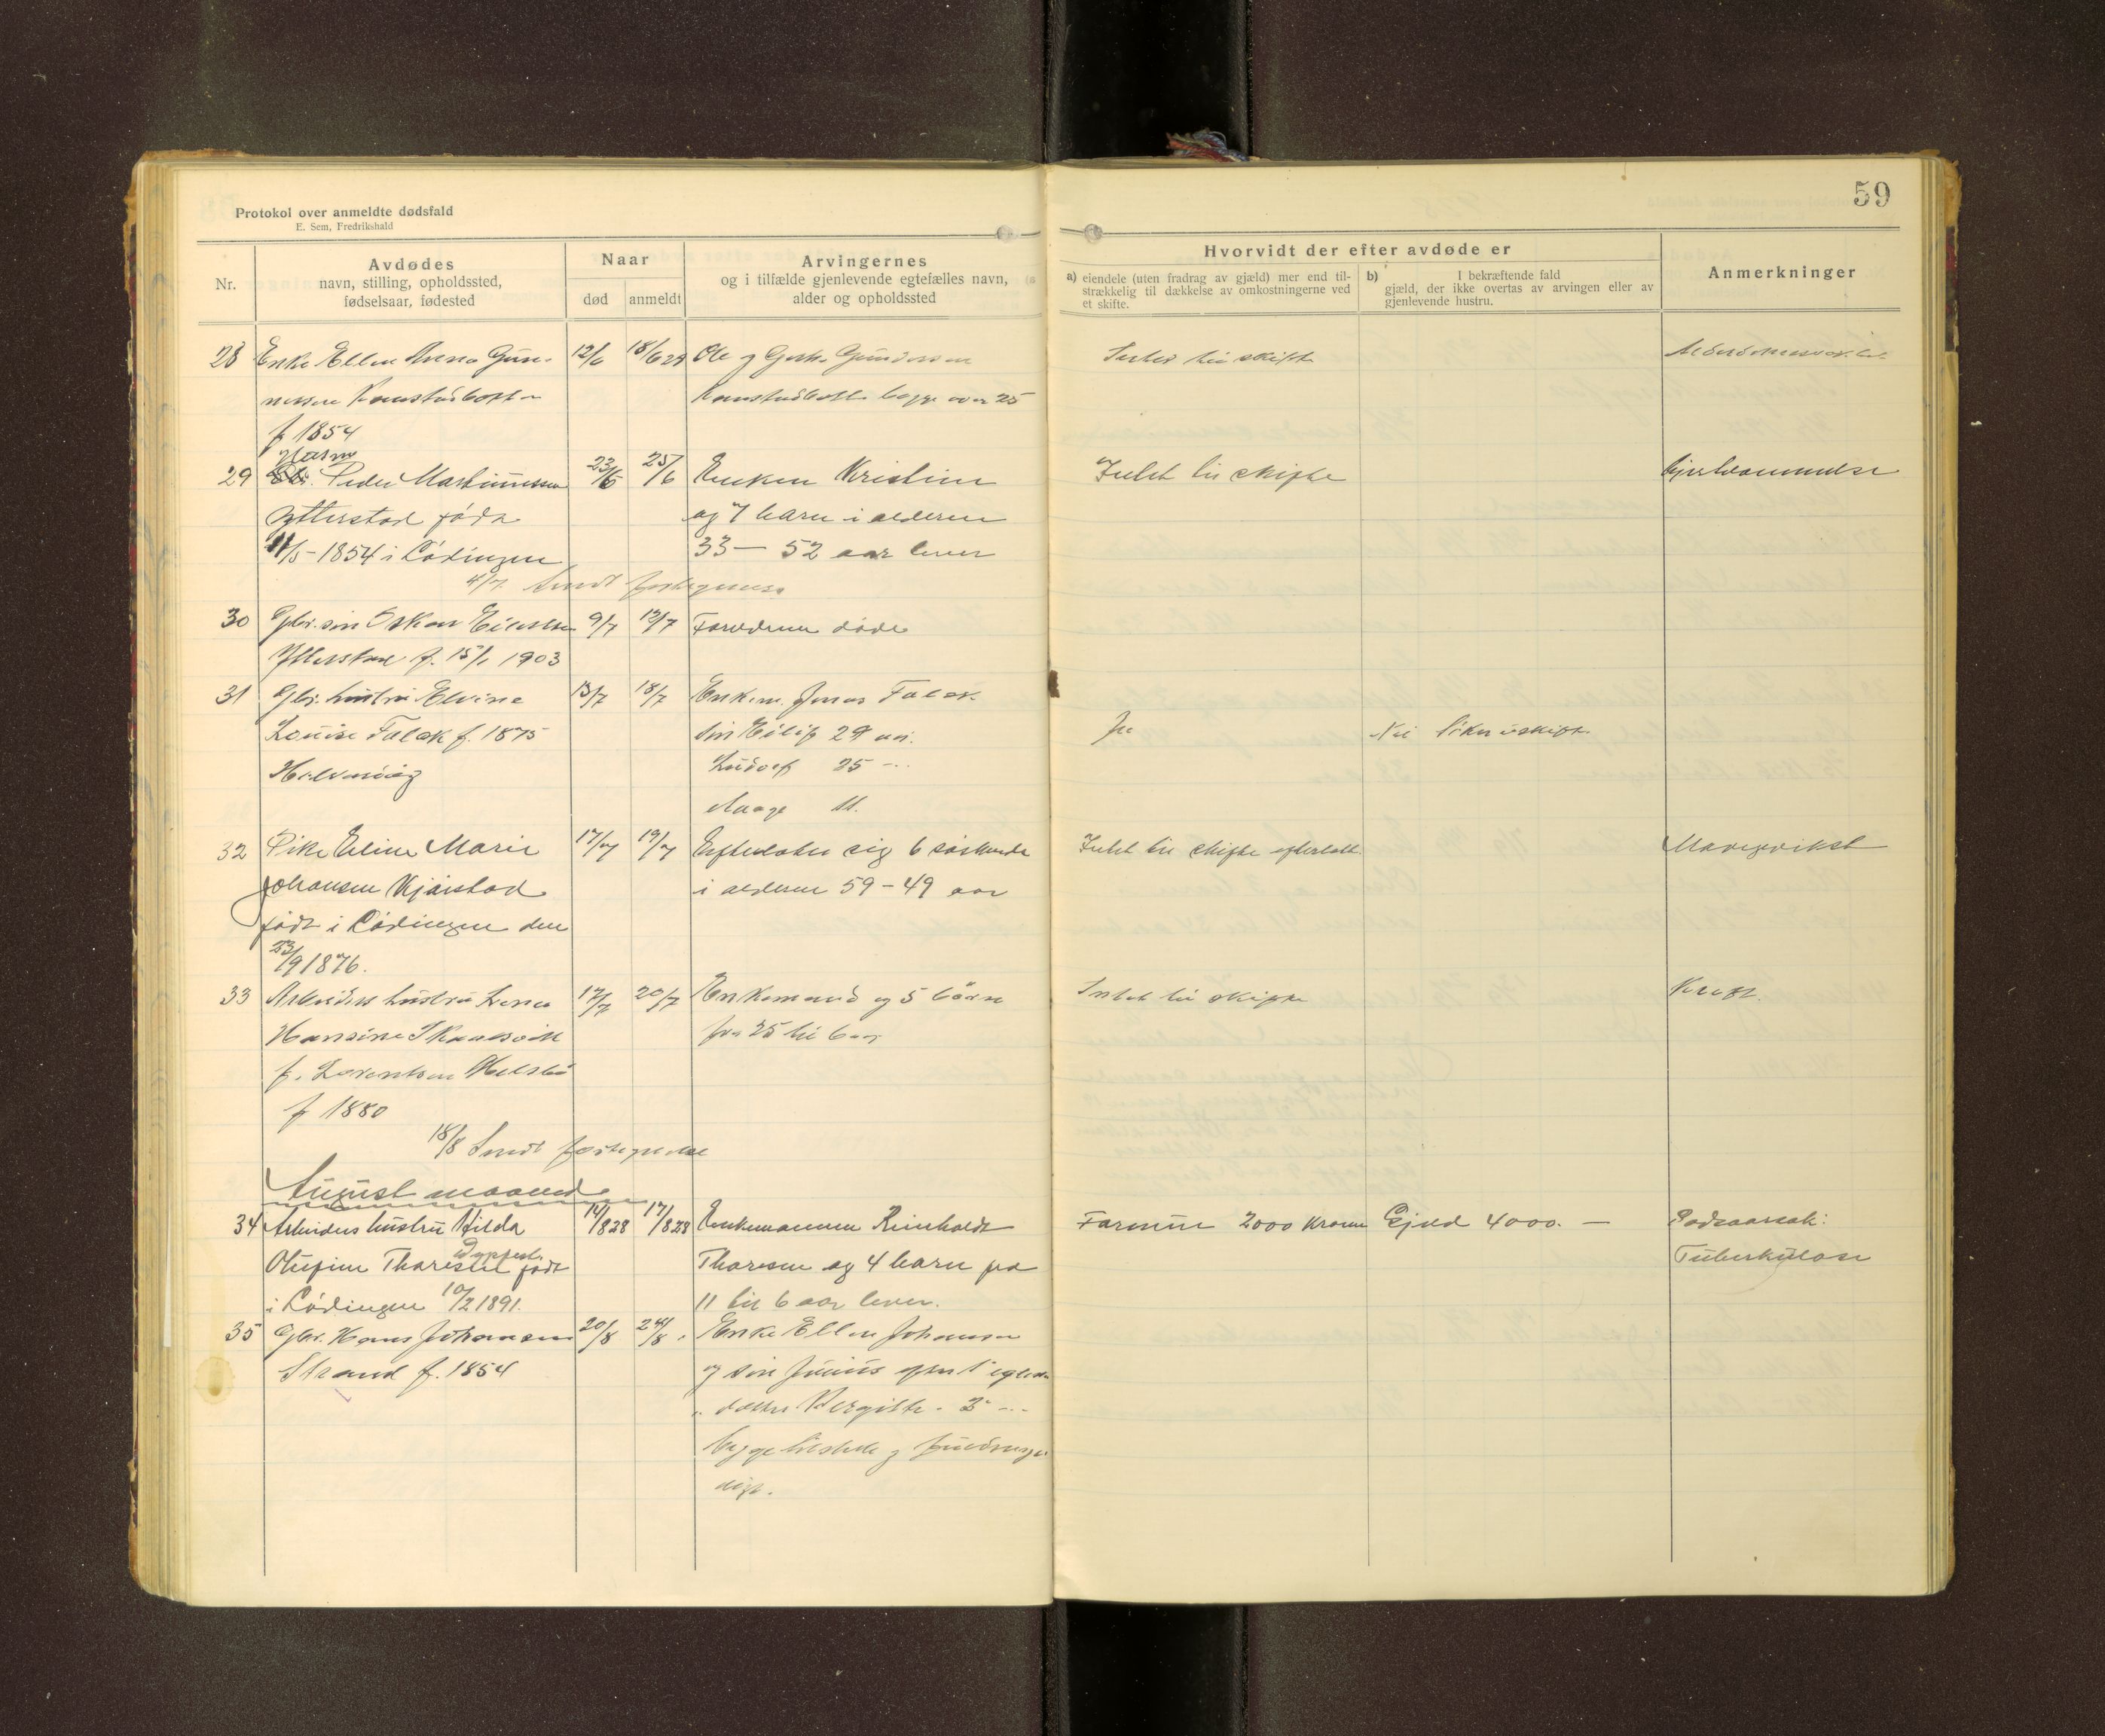 59
Protokol over anmeldte dødsfald
E. Sem, Fredrikshald
Nr.
Avdødes
navn, stilling, opholdssted,
fødselsaar, fødested
Naar
død
anmeldt
Arvingernes
og i tilfælde gjenlevende egtefælles navn,
alder og opholdssted
Hvorvidt der efter avdøde er
a) eiendele (uten fradrag av gjæld) mer end til-
strækkelig til dækkelse av omkostningerne ved
et skifte.
b) I bekræftende fald
gjæld, der ikke overtas av arvingen eller av
gjenlevende hustru.
Anmerkninger
28 Enke Ellen Anna Gun- 12/6 18/6 28 Ole og Gundersen Intet til skifte
begge over 25
f 1854
29 Peder Martinussen 23/6 25/6 Enken Kristine Intet til skifte Hjertelammelse
Ytterstad født og 7 barn i alderen
11/5-1854 i Lødingen 33 — 52 aar lever
4/7 Sendt fortegnelse
30 Gbr. søn Oskar Eilertsen 9/7 12/7 Forældrene døde
Ytterstad f. 15/1 1903
31 Gbr. hustru Elvine 13/7 18/7 Enkem. Jonas Falck
Louise Falck f. 1875 søn Eilif 29 aar. Ja Nei uskifte
Ludolf 25 - "
Aage 11.
32 Pike Eline Marie 17/7 19/7 Efterlater sig 6 søskende Intet til skifte efterlatt Mavekræft
Johansen Kjærstad i alderen 59 - 49 aar
født i Lødingen den
23/9 1876.
33 Arbeiders hustru Lena 17/7 20/7 Enkemand og 5 børn Intet til skifte Kreft.
Hansine fra 25 til 6 aar
f. Lorentsen
f 1880
18/8 Sendt fortegnelse
August maaned
34 Arbeiders hustru Hilda 14/8 28 17/8 28 Enkemannen Reinholdt Formue 2000 kroner Gjeld 4000. — Dødsaarsak:
Olufine Thoresen født Thoresen og 4 barn fra Tuberkulose
i Lødingen 10/2 1891. 11 til 6 aar lever.
35 Gbr. Hans Johansen 20/8 24/8. Enke Ellen Johansen
Strand f. 1854 og søn Junius
datter Bergitte
begge